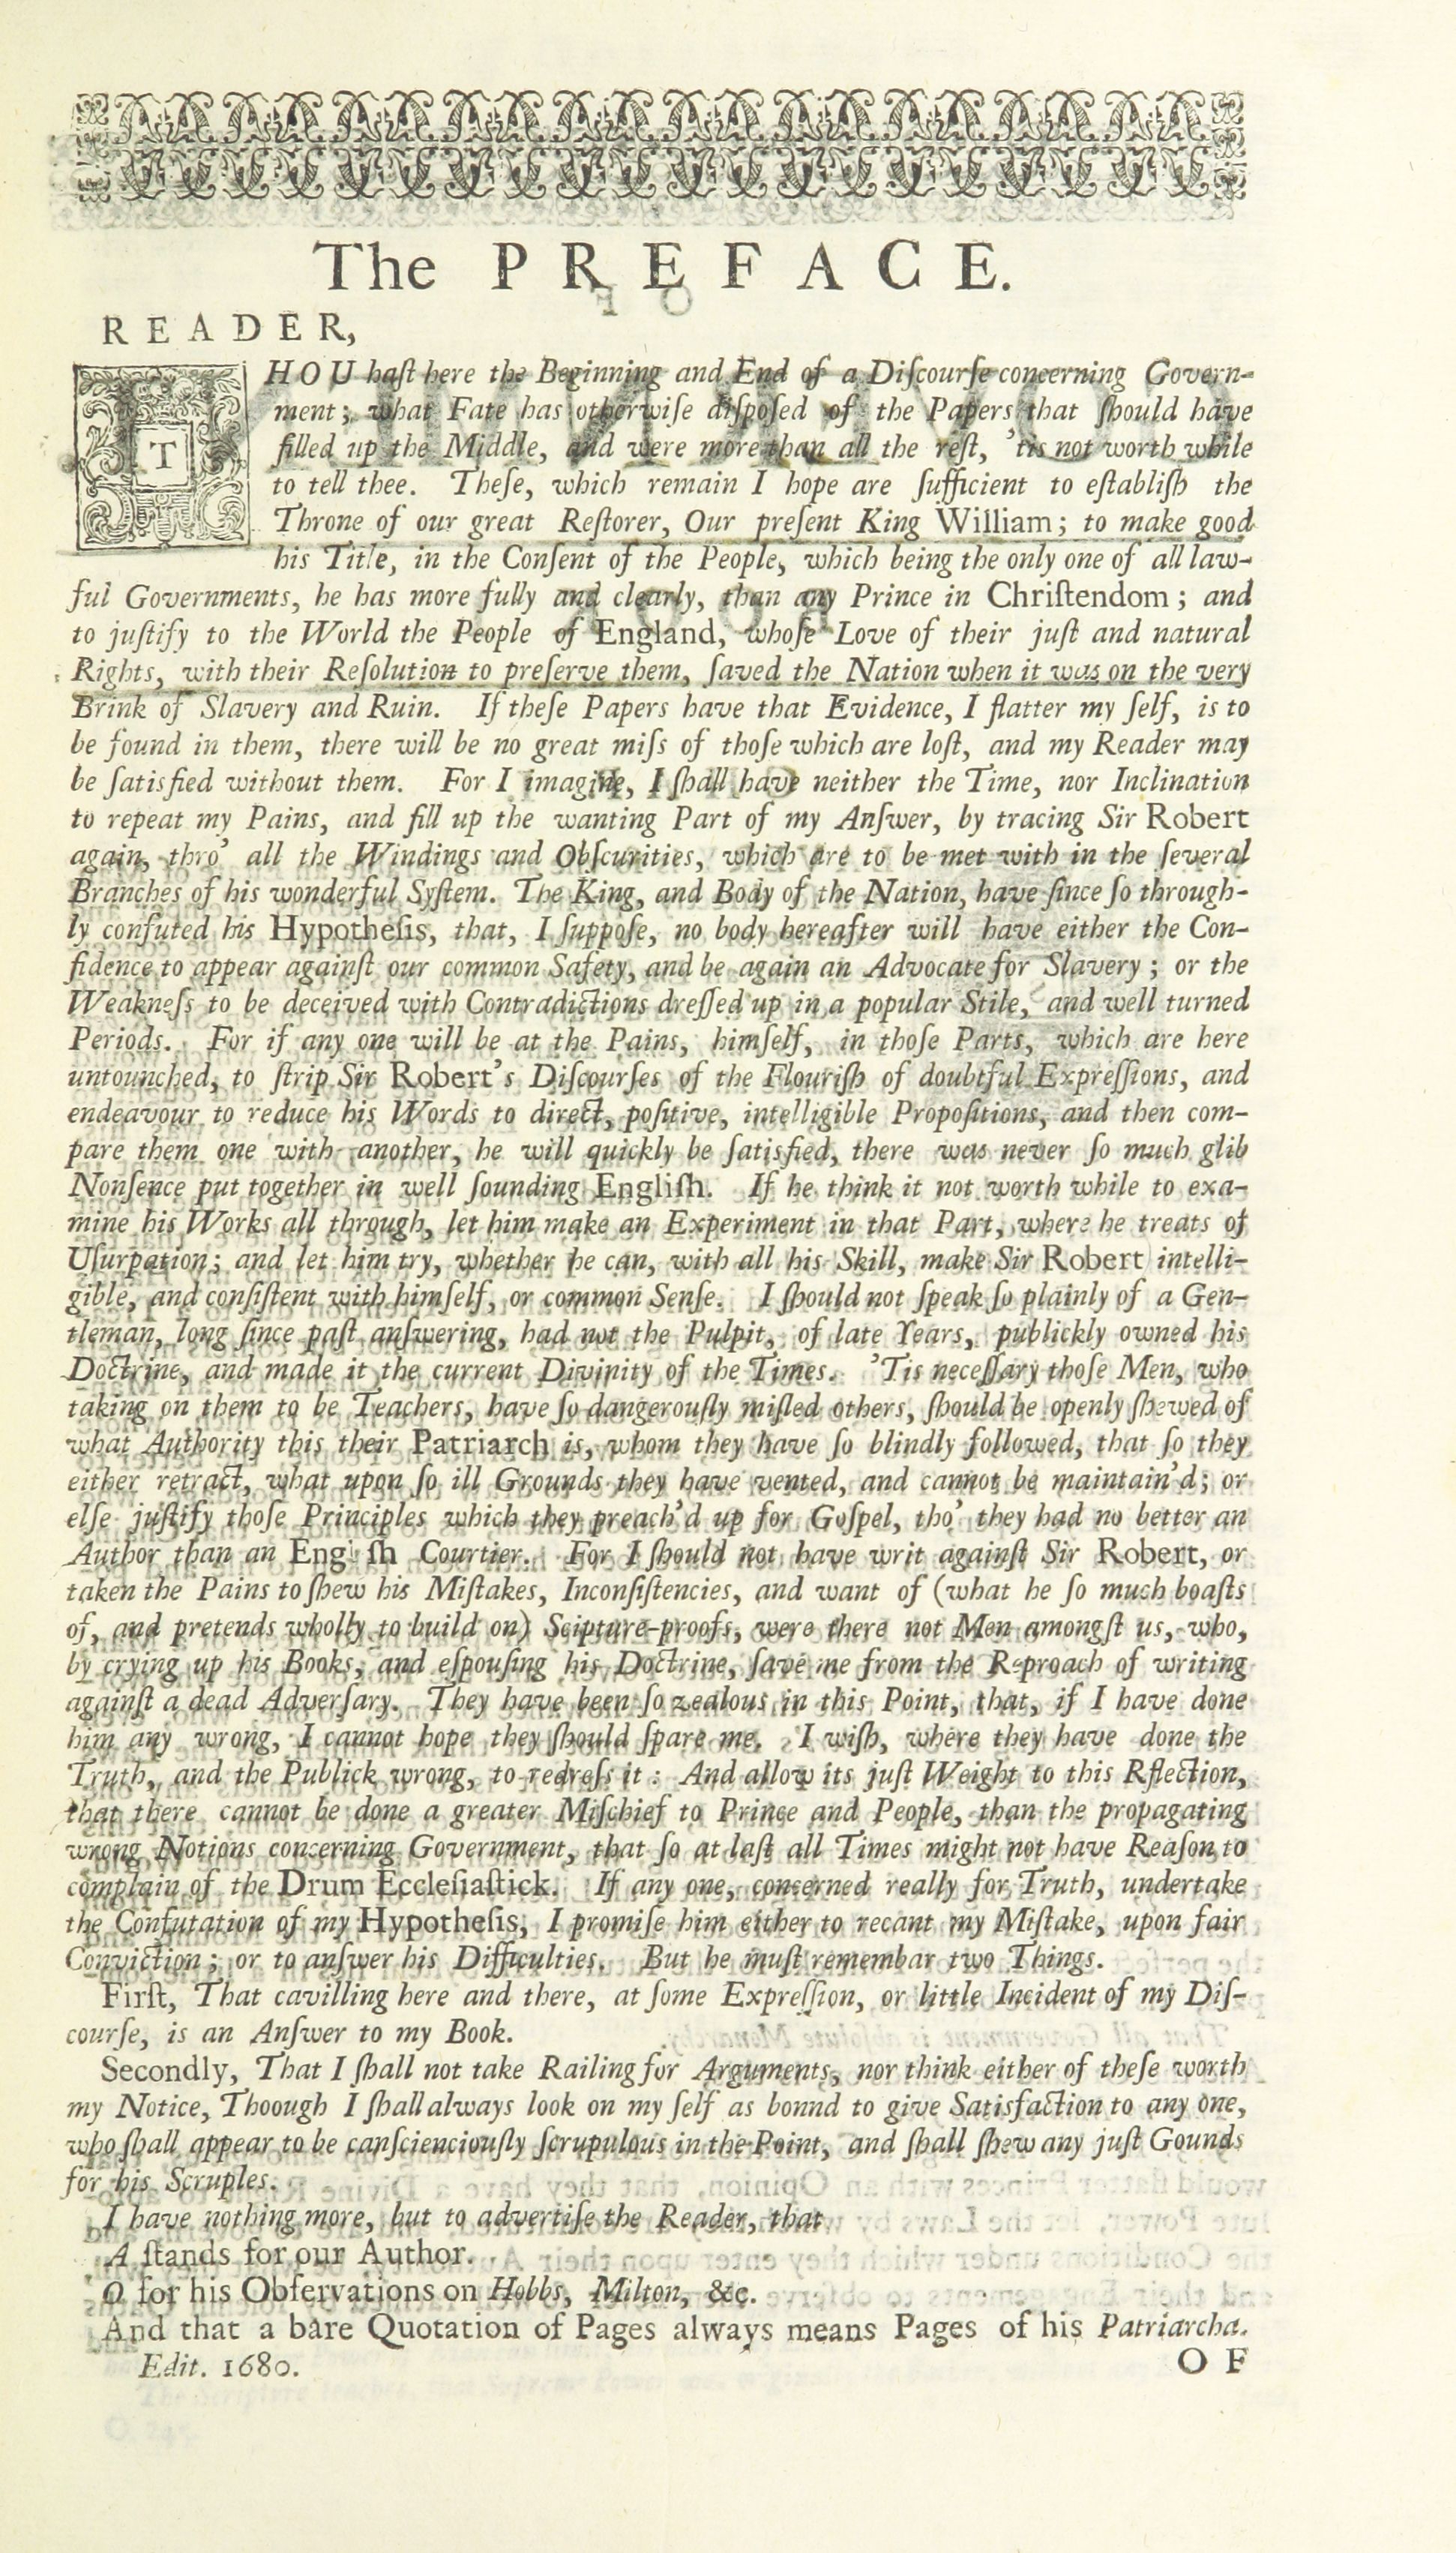 The PREFACE.
READER,
THOU haſt here the Beginning and End of a Diſcourſe concerning Govern-
ment; what Fate has otherwiſe diſpoſed of the Papers that ſhould have
filled up the Middle, and were more than all the reſt, 'tis not worth while
to tell thee. Theſe, which remain I hope are ſufficient to eſtabliſh the
Throne of our great Reſtorer, Our preſent King William; to make good
his Title, in the Conſent of the People, which being the only one of all law-
ful Governments, he has more fully and clearly, than any Prince in Chriſtendom; and
to juſtify to the World the People of England, whoſe Love of their juſt and natural
Rights, with their Reſolution to preſerve them, ſaved the Nation when it was on the very
Brink of Slavery and Ruin. If theſe Papers have that Evidence, I flatter my ſelf, is to
be found in them, there will be no great miſs of thoſe which are loſt, and my Reader may
be ſatisfied without them. For I imagine, I ſhall have neither the Time, nor Inclination
to repeat my Pains, and fill up the wanting Part of my Anſwer, by tracing Sir Robert
again, thro' all the Windings and Obſcurities, which are to be met with in the ſeveral
Branches of his wonderful Syſtem. The King, and Body of the Nation, have ſince ſo through-
ly confuted his Hypotheſis, that, I ſuppoſe, no body hereafter will have either the Con-
fidence to appear againſt our common Safety, and be again an Advocate for Slavery; or the
Weakneſs to be deceived with Contradictions dreſſed up in a popular Stile, and well turned
Periods. For if any one will be at the Pains, himſelf, in thoſe Parts, which are here
untounched, to ſtrip Sir Robert's Diſcourſes of the Flouriſh of doubtful Expreſſions, and
endeavour to reduce his Words to direct, poſitive, intelligible Propoſitions, and then com-
pare them one with another, he will quickly be ſatisfied, there was never ſo much glib
Nonſence put together in well ſounding Engliſh. If he think it not worth while to exa-
mine his Works all through, let him make an Experiment in that Part, where he treats of
Uſurpation; and let him try, whether he can, with all his Skill, make Sir Robert intelli-
gible, and conſiſtent with himſelf, or common Senſe. I ſhould not ſpeak ſo plainly of a Gen-
tleman, long ſince paſt anſwering, had not the Pulpit, of late Years, publickly owned his
Doctrine, and made it the current Divinity of the Times. 'Tis neceſſary thoſe Men, who
taking on them to be Teachers, have ſo dangerouſly miſled others, ſhould be openly ſhewed of
what Authority this their Patriarch is, whom they have ſo blindly followed, that ſo they
either retract, what upon ſo ill Grounds they have vented, and cannot be maintain'd; or
elſe juſtify thoſe Principles which they preach'd up for Goſpel, tho' they had no better an
Author than an Eng ſh Courtier. For I ſhould not have writ againſt Sir Robert, or
taken the Pains to ſhew his Miſtakes, Inconſiſtencies, and want of (what he ſo much boaſts
of, and pretends wholly to build on) Scipture-proofs, were there not Men amongſt us, who,
by crying up his Books, and eſpouſing his Doctrine, ſave me from the Reproach of writing
againſt a dead Adverſary. They have been ſo zealous in this Point, that, if I have done
him any wrong, I cannot hope they ſhould ſpare me. I wiſh, where they have done the
Truth, and the Publick wrong, to redreſs it: And allow its juſt Weight to this Rflection,
that there cannot be done a greater Miſchief to Prince and People, than the propagating
wrong Notions concerning Government, that ſo at laſt all Times might not have Reaſon to
complain of the Drum Eccleſiaſtick. If any one, concerned really for Truth, undertake
the Confutation of my Hypotheſis, I promiſe him either to recant my Miſtake, upon fair
Conviction; or to anſwer his Difficulties. But he muſt remembar two Things.
Firſt, That cavilling here and there, at ſome Expreſſion, or little Incident of my Diſ-
courſe, is an Anſwer to my Book.
Secondly, That I ſhall not take Railing for Arguments, nor think either of theſe worth
my Notice, Thoough I ſhall always look on my ſelf as bonnd to give Satisfaction to any one,
who ſhall appear to be canſciencioſly ſcrupulous in the Point, and ſhall ſhew any juſt Gounds
for his Scruples.
I have nothing more, but to advertiſe the Reader, that
A ſtands for our Author.
O for his Obſervations on Hobbs, Milton, &c.
And that a bare Quotation of Pages always means Pages of his Patriarcha.
Edit. 1680.
OF